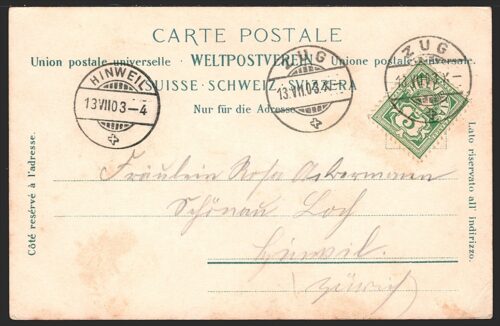 CARTE POSTALE
Union postale universelle. WELTPOSTVEREIN. Unione postale universale.
SUISSE · SCHWEIZ · SVIZZERA
Nur für die Adresse
HINWEIL
13.VII.03-4
ZUG
13.VII.03
ZUG
5
Côté resérvé à l'adresse.
Lato riservato all' indirizzo.
Fräulein Rosa Ackermann
Schönau Loch
Hinwil.
(Zürich)